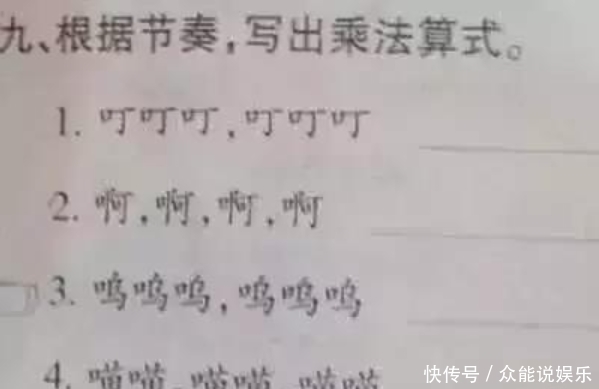 九、根据节奏,写出乘法算式。
1. 叮叮叮,叮叮叮
2. 啊,啊,啊,啊
3. 呜呜呜,呜呜呜
4. 喵喵,喵喵,喵喵
快传号 / 众能说娱乐